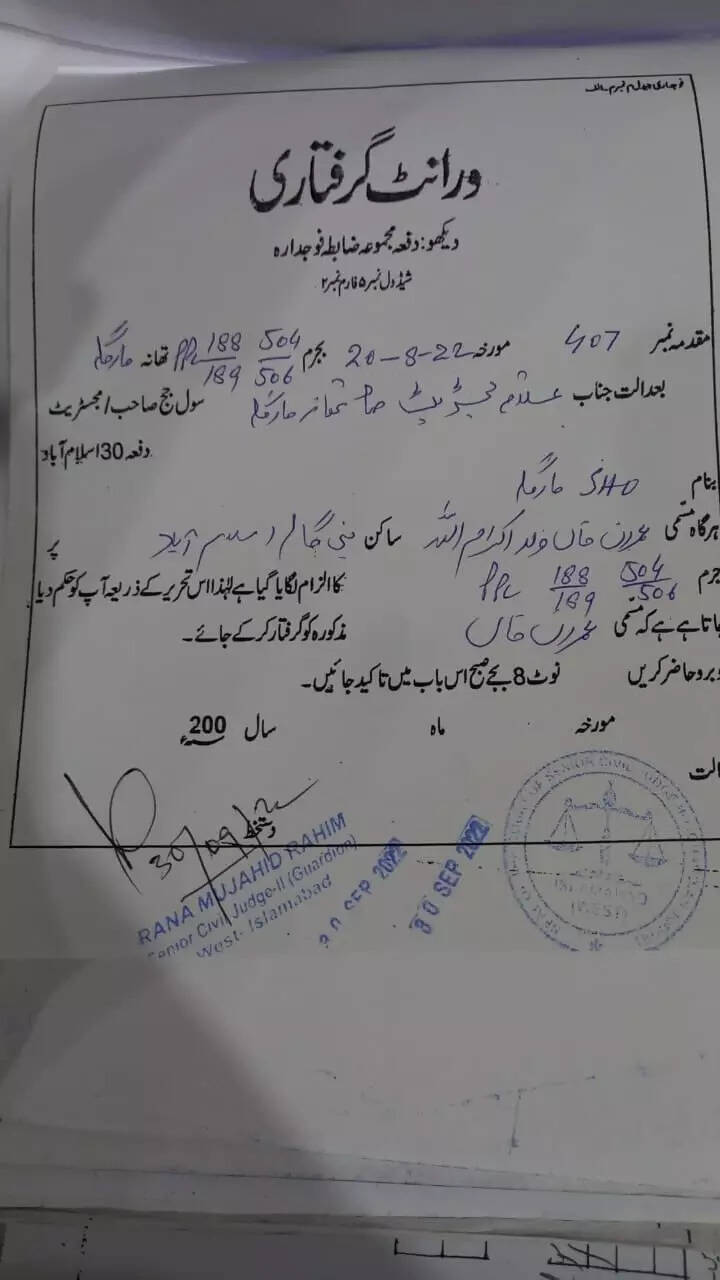 وارنٹ گرفتاری
دیکھو: دفعہ مجموعہ ضابطہ فوجداره
شیڈول نمبر ۵ فارم نمبر ۲
مقدمہ نمبر 407 مورخہ 20-8-22 بجرم 504/506 188/189 PPC تھانہ مارگلہ
بعدالت جناب علاقہ مجسٹریٹ صاحب تھانہ مارگلہ سول جج صاحب/مجسٹریٹ
دفعہ 30 اسلام آباد
بنام SHO مارگلہ
ہرگاہ مسمی عمران خان ولد اکرام اللہ ساکن بنی گالہ اسلام آباد پر
جرم 504/506 188/189 PPC کا الزام لگایا گیا ہے لہٰذا اس تحریر کے ذریعہ آپ کو حکم دیا
جاتا ہے ہے کہ مسمّی عمران خان مذکورہ کو گرفتار کر کے جائے۔
وبرو حاضر کریں نوٹ 8 بجے صبح اس باب میں تاکید جائیں۔
مورخہ ماہ سال 200ء
الت
دستخط
30/09/22
RANA MUJAHID RAHIM
Senior Civil Judge-II (Guardion)
West-Islamabad
30 SEP 2022
30 SEP 2022
SENIOR CIVIL JUDGE
ISLAMABAD
(WEST)